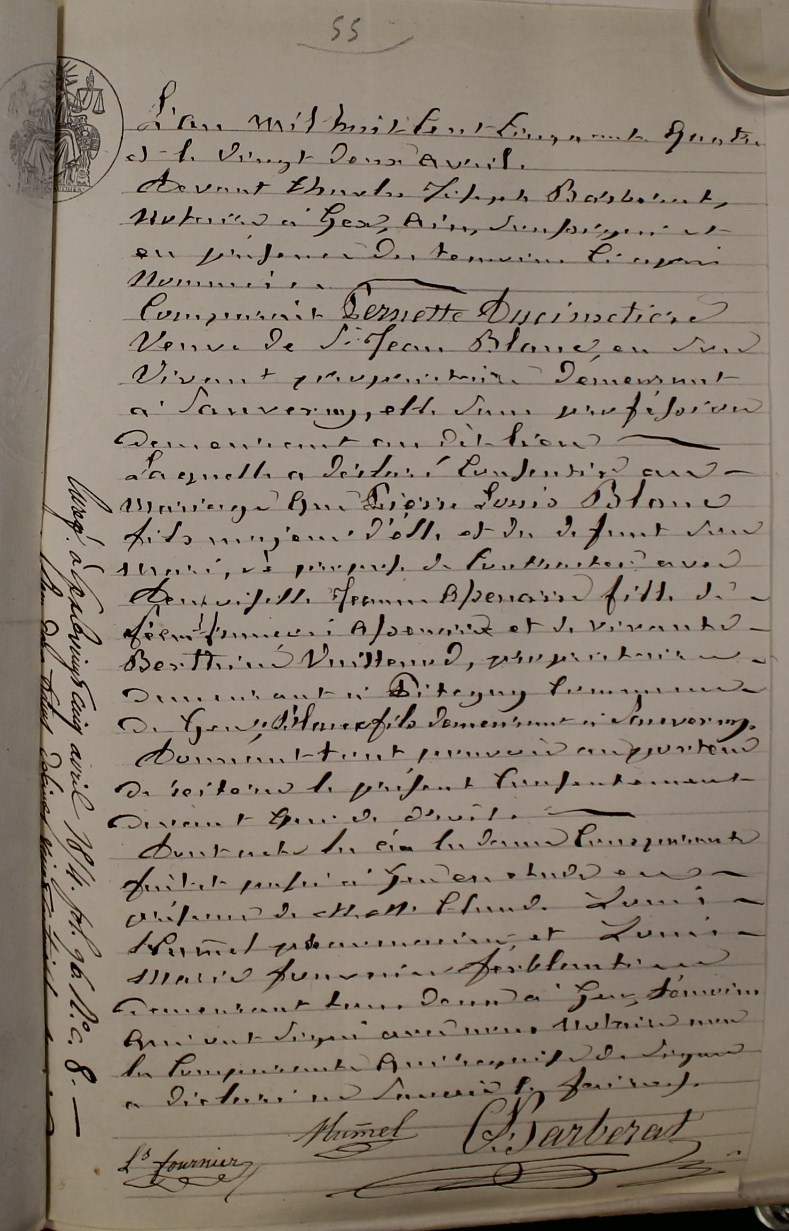 55
L'an mil huit cent cinquante quatre
et le vingt deux avril.
Devant Charles Joseph Barberat,
Notaire à Gex, Ain, soussigné et
en présence des temoins ci après
nommés
Comparait Pernette Ducimetière
Veuve de Sr Jean Blanc, en son
vivant propriétaire demeurant
à Sauverny, elle sans profession
demeurant au dit lieu
Laquelle a déclaré consentir au
mariage que Pierre Louis Blanc
fils majeur d'elle et du defunt son
mari, se propose de contracter avec
Demoiselle Jeanne fille de
feu et de vivante
propriétaire
demeurant à Pitegny commune
de Gex, Blanc fils demeurant à Sauverny.
Donnant tout pouvoir au porteur
de réitérer le présent consentement
devant qui de droit.
Dont acte lu à la dame comparante
fait et passé à Gex en étude en
présence de MM. Claude Louis
Humel pharmacien et Louis
Marie fournier ferblantier
demeurant tous deux à Gex, témoins
qui ont signé avec nous Notaire non
la comparante qui requise de signer
a déclaré ne savoir le faire.
Humel CJ Barberat
Ls fournier
Enregé. à Gex le vingt cinq avril 1854. fol. 96 Ro c. 8.